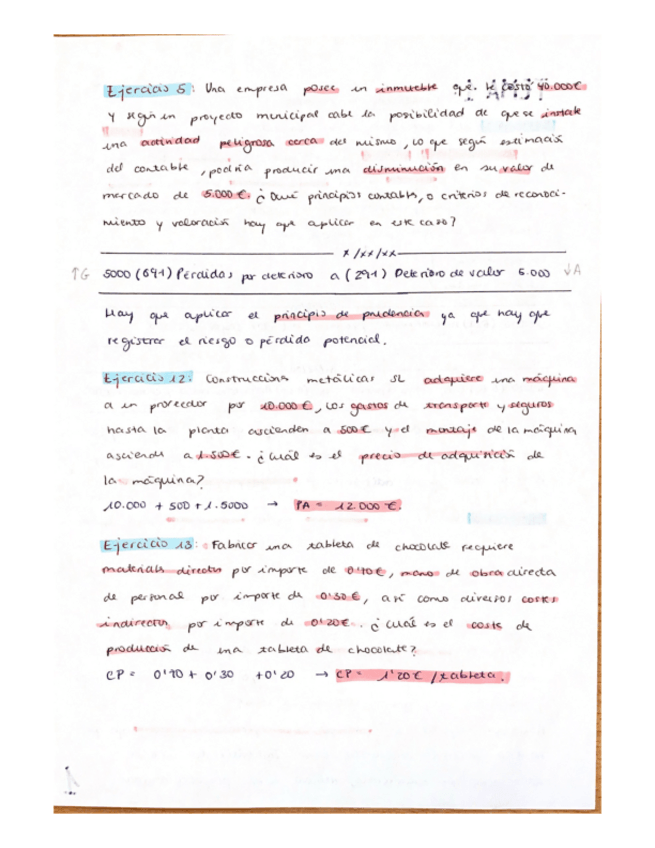 Ejercicio 5: Una empresa posee un inmueble que le costó 40.000€
y según un proyecto municipal cabe la posibilidad de que se instale
una actividad peligrosa cerca del mismo, lo que según estimación
del contable, podría producir una disminución en su valor de
mercado de 5.000€. ¿Qué principios contables, o criterios de reconoci-
miento y valoración hay que aplicar en este caso?
x/xx/xx
↑G 5000 (691) Pérdidas por deterioro a (291) Deterioro de valor 5.000 ↓A
Hay que aplicar el principio de prudencia ya que hay que
registrar el riesgo o pérdida potencial.
Ejercicio 12: Construcciones metálicas SL adquiere una máquina
a un proveedor por 10.000€, los gastos de transporte y seguros
hasta la planta ascienden a 500€ y el montaje de la máquina
asciende a 1.500€. ¿Cuál es el precio de adquisición de
la máquina?
10.000 + 500 + 1.5000 → PA = 12.000€.
Ejercicio 13: Fabricar una tableta de chocolate requiere
materiales directos por importe de 0'70€, mano de obra directa
de personal por importe de 0'30€, así como diversos costes
indirectos por importe de 0'20€. ¿Cuál es el coste de
producción de una tableta de chocolate?
CP = 0'70 + 0'30 + 0'20 → CP = 1'20€/tableta.